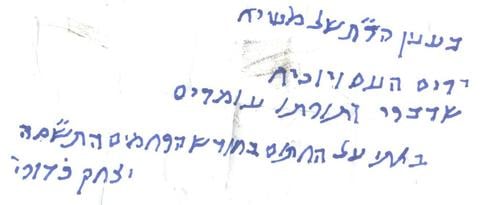 בענין הר״ת של משיח
ירים העם ויוכיח
שדברי ותורתו עומדים
באתי על החתום בחודש הרחמים התשס״ה
יצחק כדורי